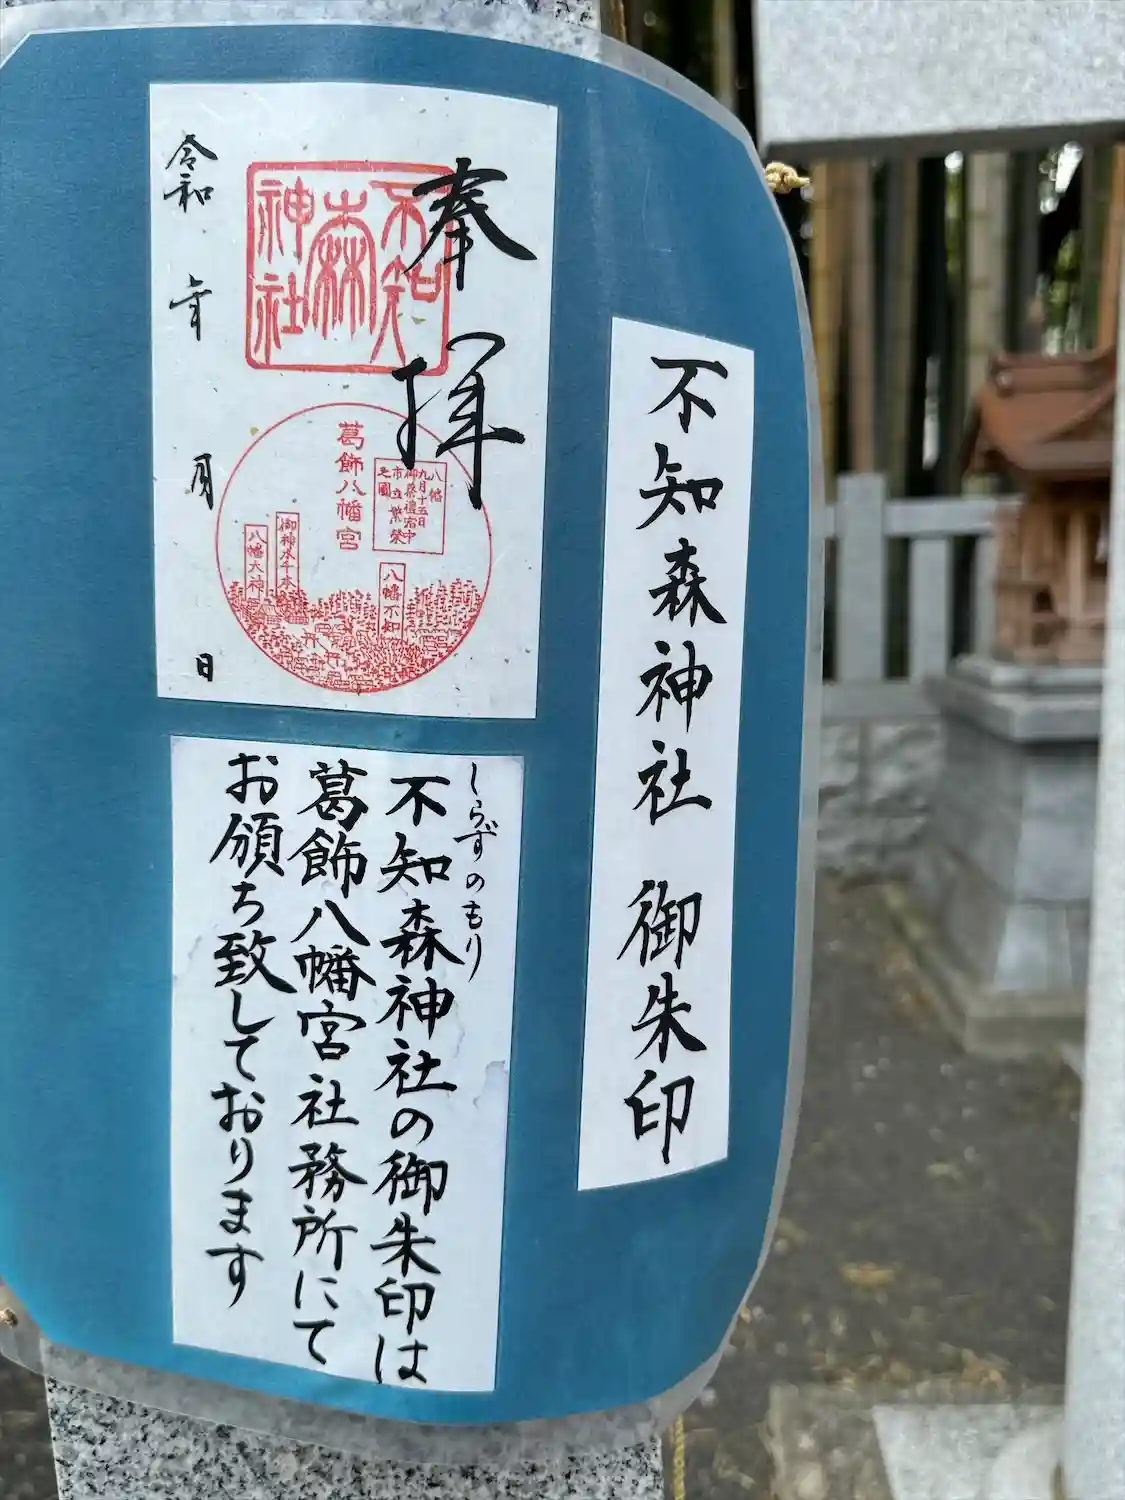 不知森神社 御朱印
奉拝
不知
森
神社
葛飾八幡宮
八幡
九月十五日
御祭禮宮中
市立繁榮
之圖
八幡不知
御神木千本
八幡大神
令和 年 月 日
しらずのもり
不知森神社の御朱印は
葛飾八幡宮社務所にて
お頒ち致しております